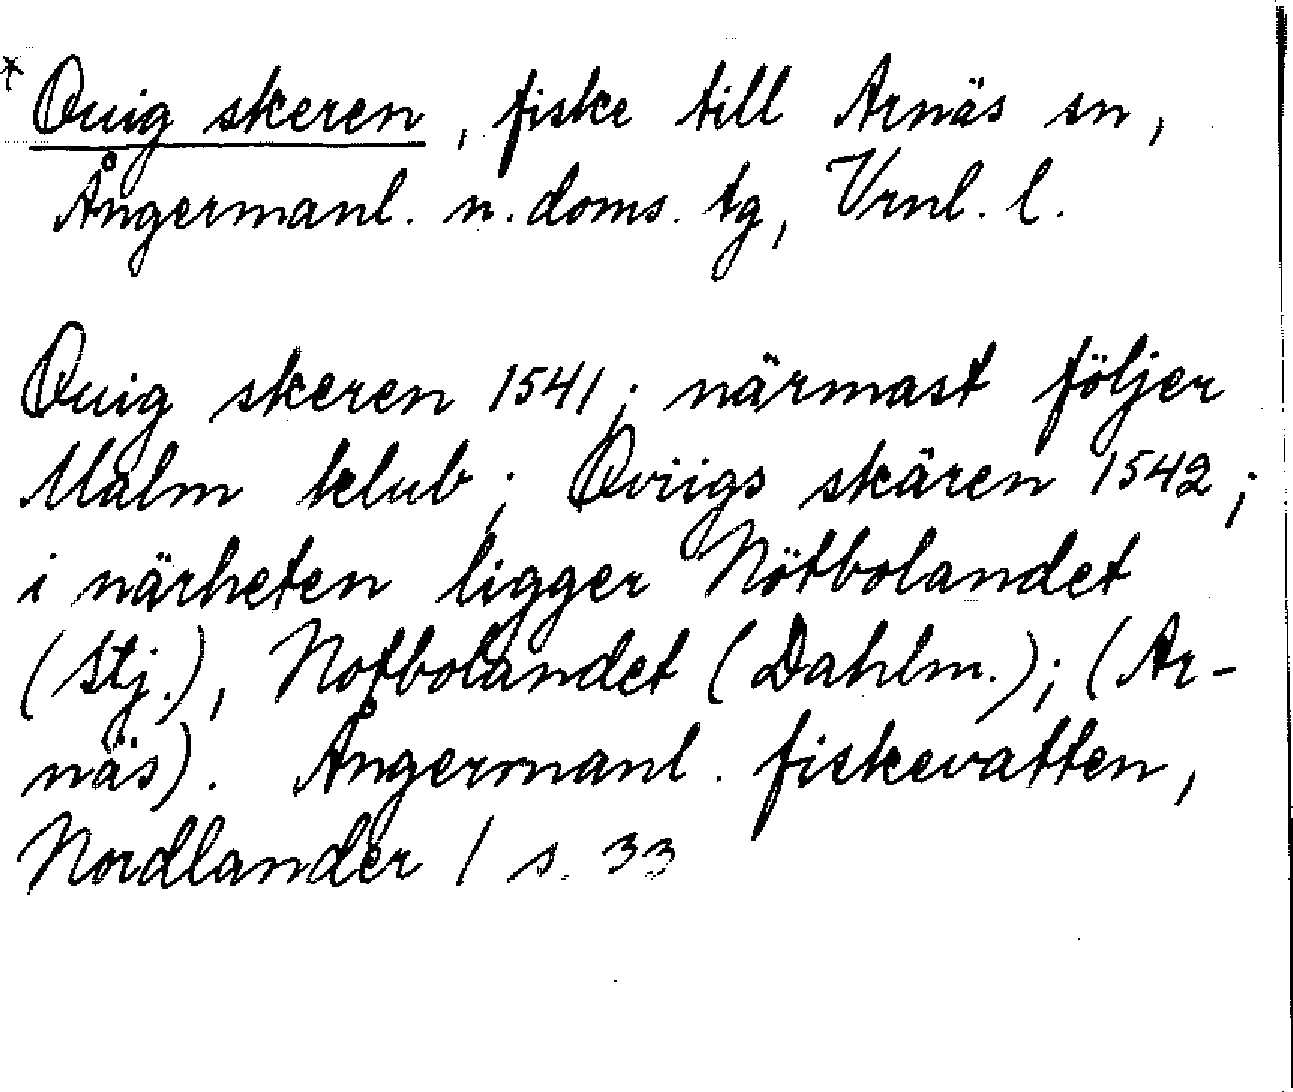 * Quig skeren, fiske till Arnäs sn,
Ångermanl. n. doms. tg, Vrnl. l.
Quig skeren 1541; närmast följer
Malm klub; Qviigs skären 1542;
i närheten ligger Nötbolandet
(Stj.), Notbolandet (Dahlm.); (Ar-
näs). Ångermanl. fiskevatten,
Nordlander 1 s. 33